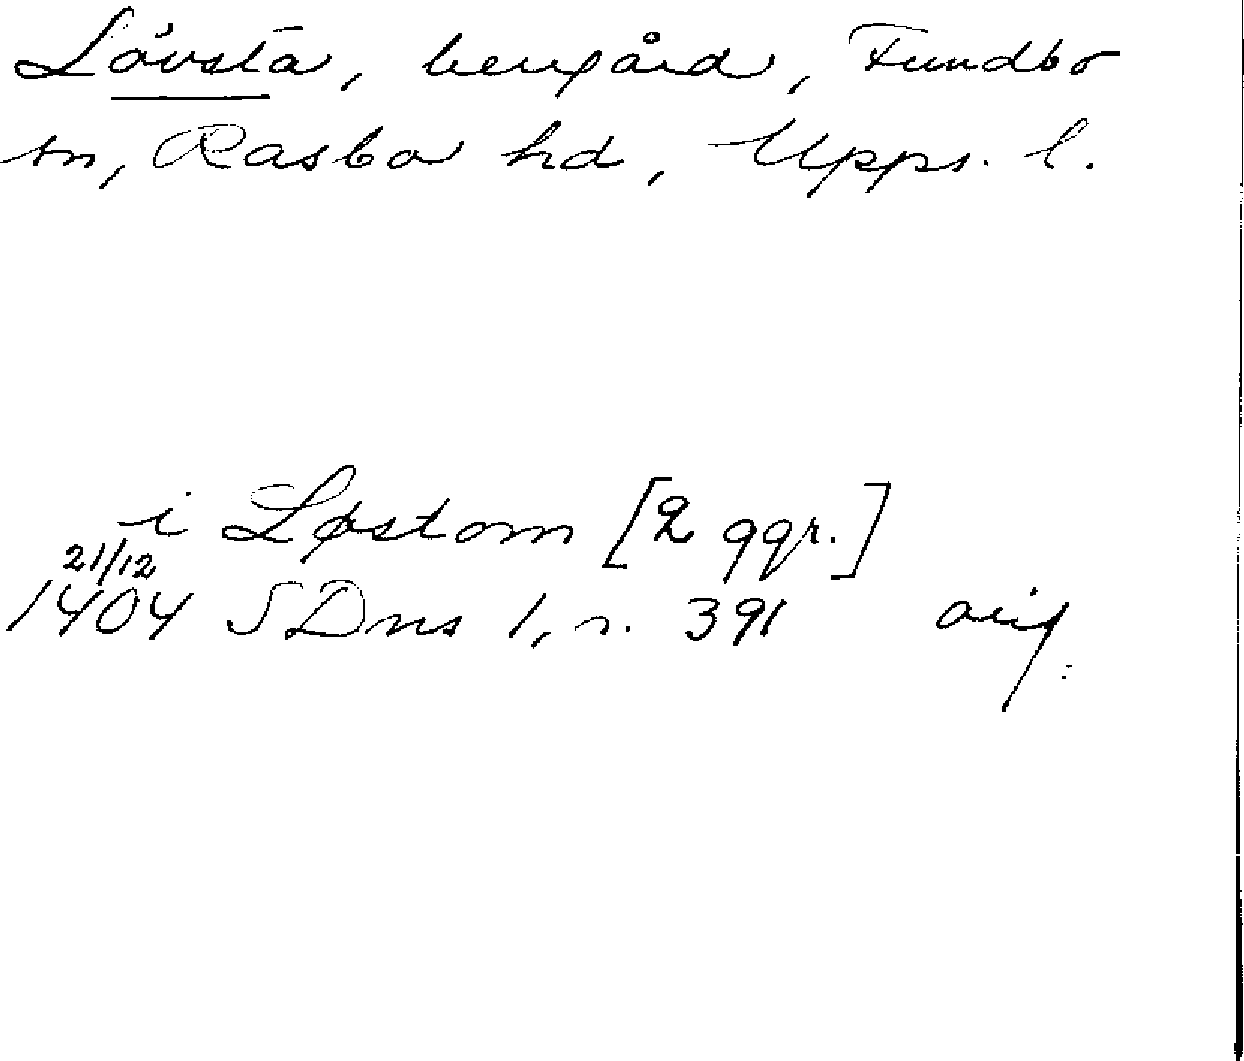 Lövsta, herrgård, Funbo
sn, Rasbo hd, Upps. l.
i Løstom [2 ggr.]
21/12
1404 SDns 1, s. 391 orig.